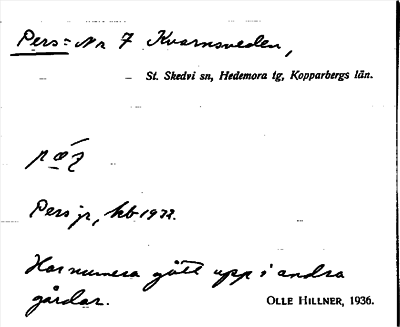 Pers: Nr 7 Kvarnsveden,
St. Skedvi sn, Hedemora tg, Kopparbergs län.
Pers jr, kb 1922.
Har numera gått upp i andra
gårdar.
OLLE HILLNER, 1936.